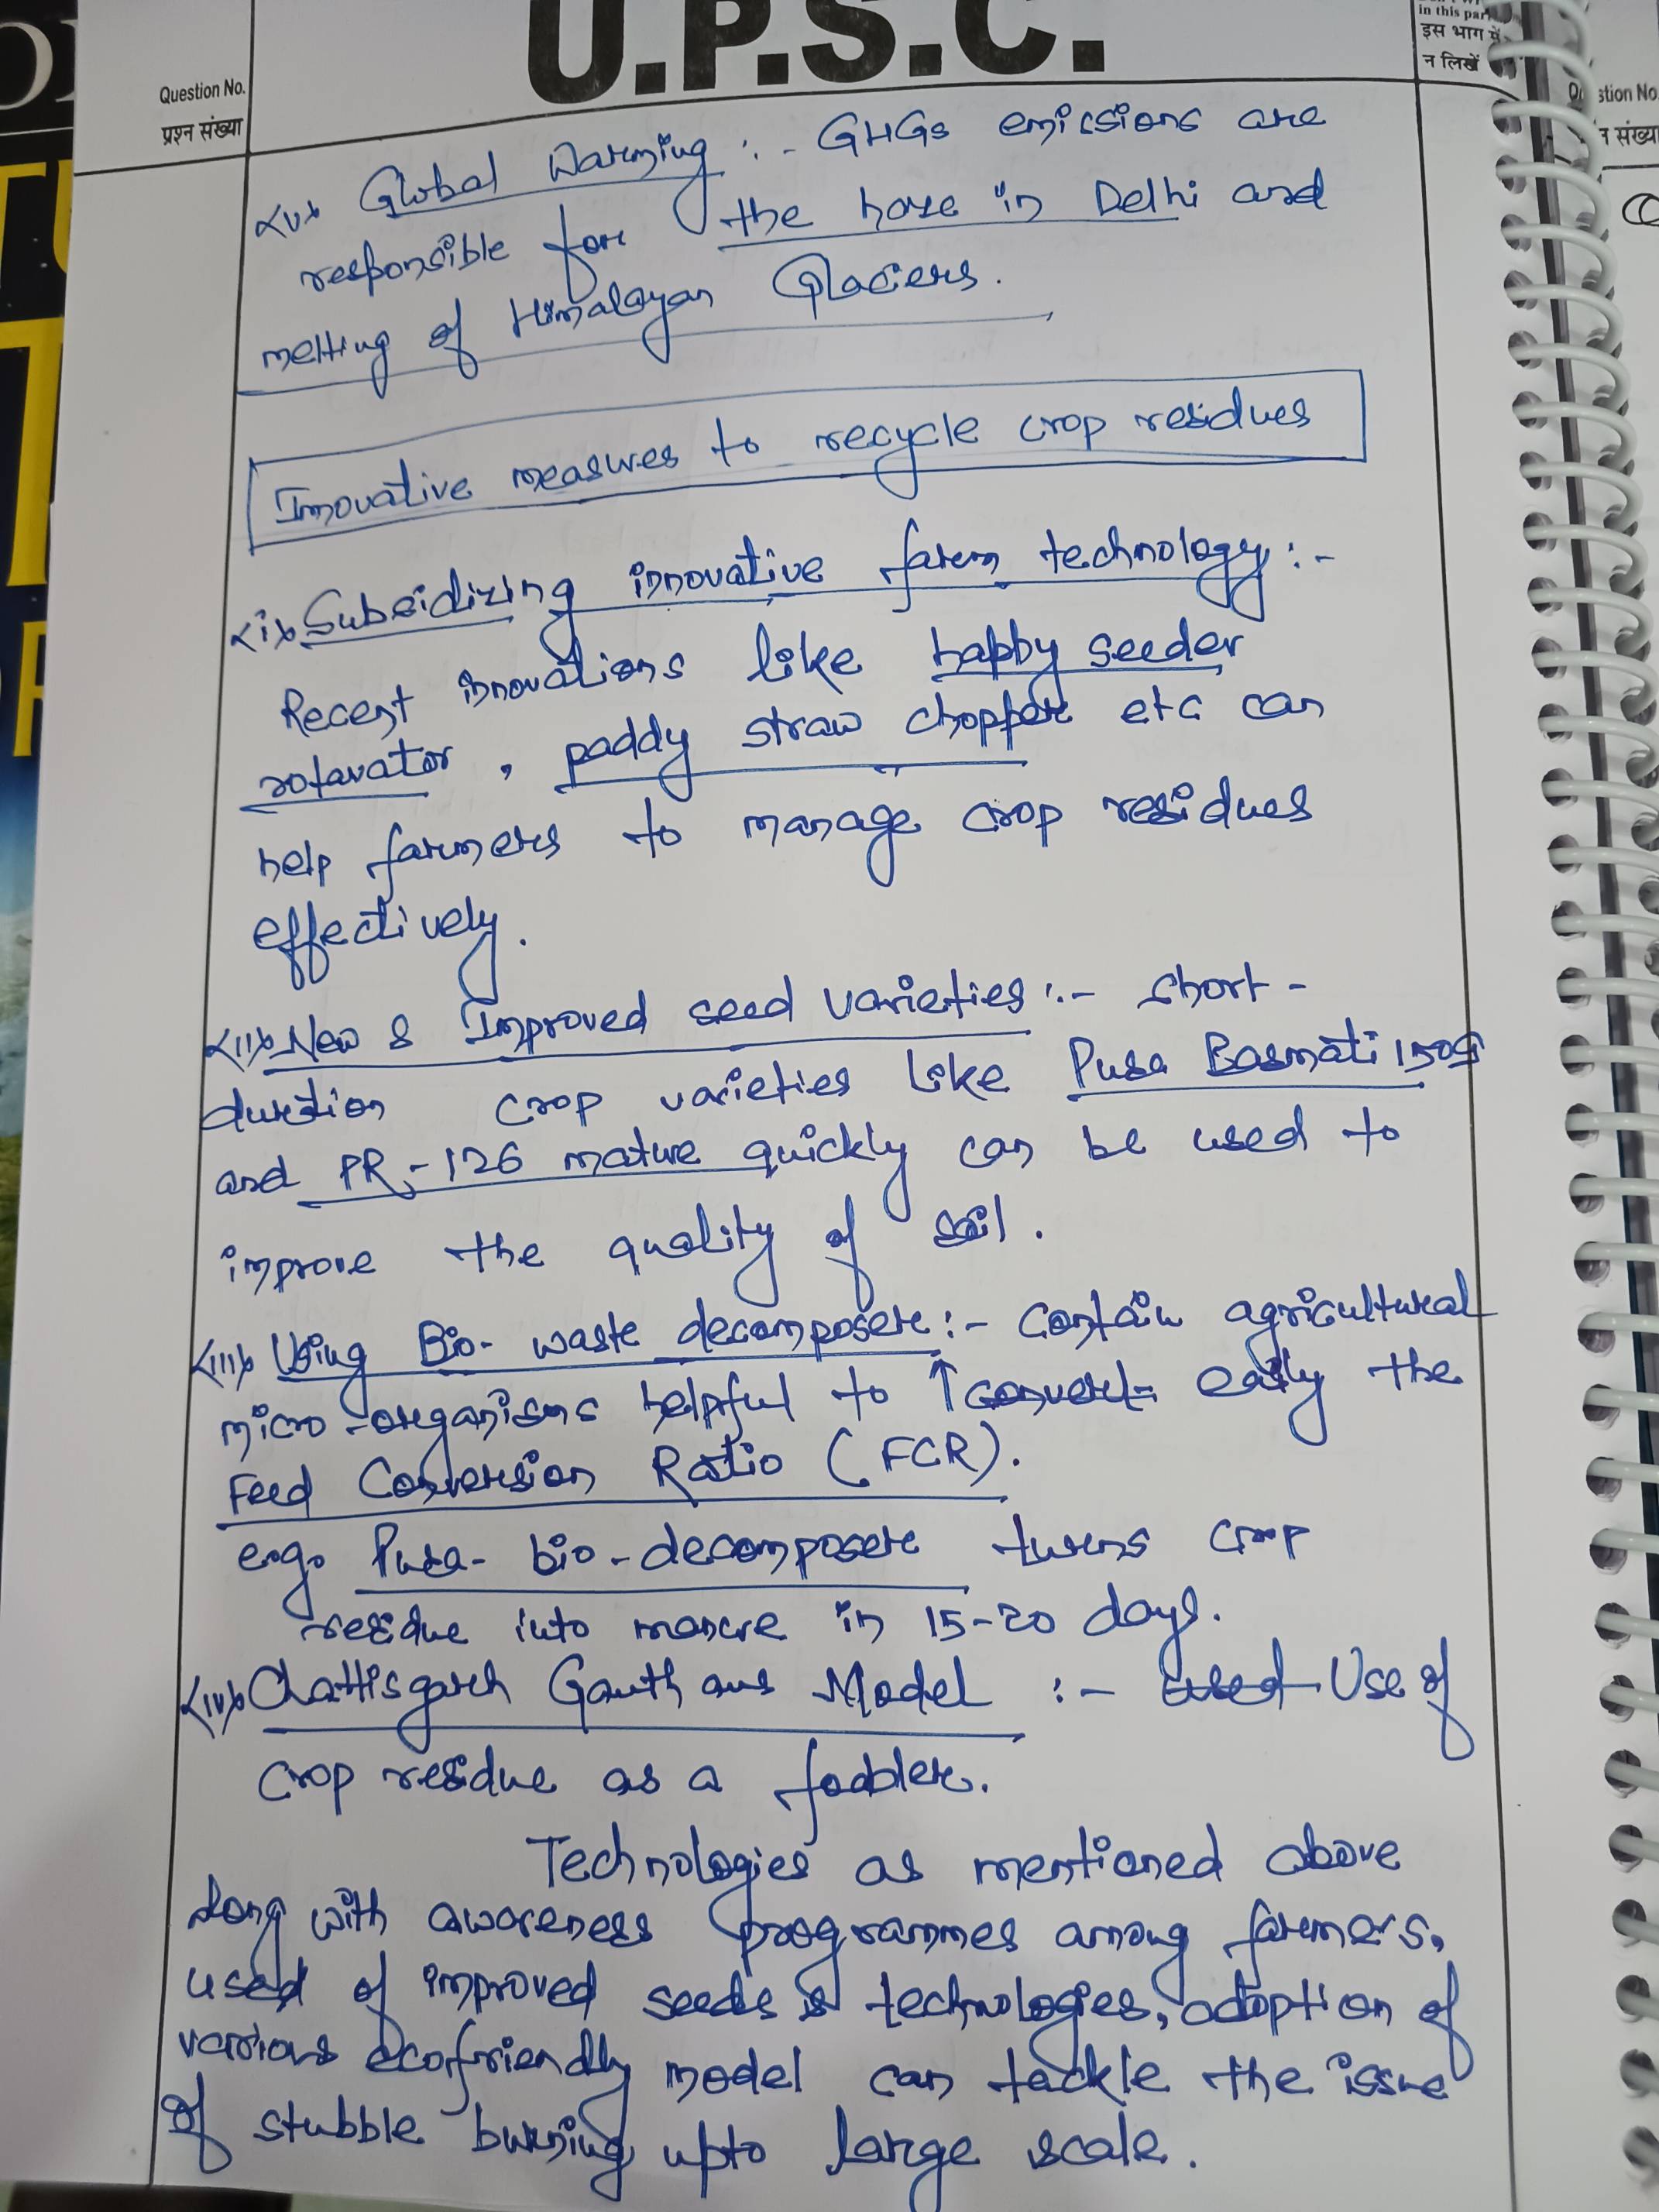 U.P.S.C.
in this part
इस भाग में
न लिखें
Question No.
प्रश्न संख्या
stion No.
संख्या
<v> Global Warming :- GHGs emissions are
responsible for the haze in Delhi and
melting of Himalayan Glaciers.
Innovative measures to recycle crop residues
<i> Subsidizing innovative farm technology :-
Recent innovations like happy seeder
rotavator, paddy straw chopper etc can
help farmers to manage crop residues
effectively.
<ii> New & Improved seed varieties :- short-
duration crop varieties like Pusa Basmati 1509
and PR-126 mature quickly can be used to
improve the quality of soil.
<iii> Using Bio-waste decomposer :- Contain agricultural
micro-organisms helpful to ↑ convert easily the
Feed Conversion Ratio (FCR).
e.g. Pusa-bio-decomposer turns crop
residue into manure in 15-20 days.
<iv> Chattisgarh Gauthans Model :- used Use of
crop residue as a fodder.
Technologies as mentioned above
along with awareness programmes among farmers,
used of improved seeds & technologies, adoption of
various ecofriendly model can tackle the issue
of stubble burning upto large scale.